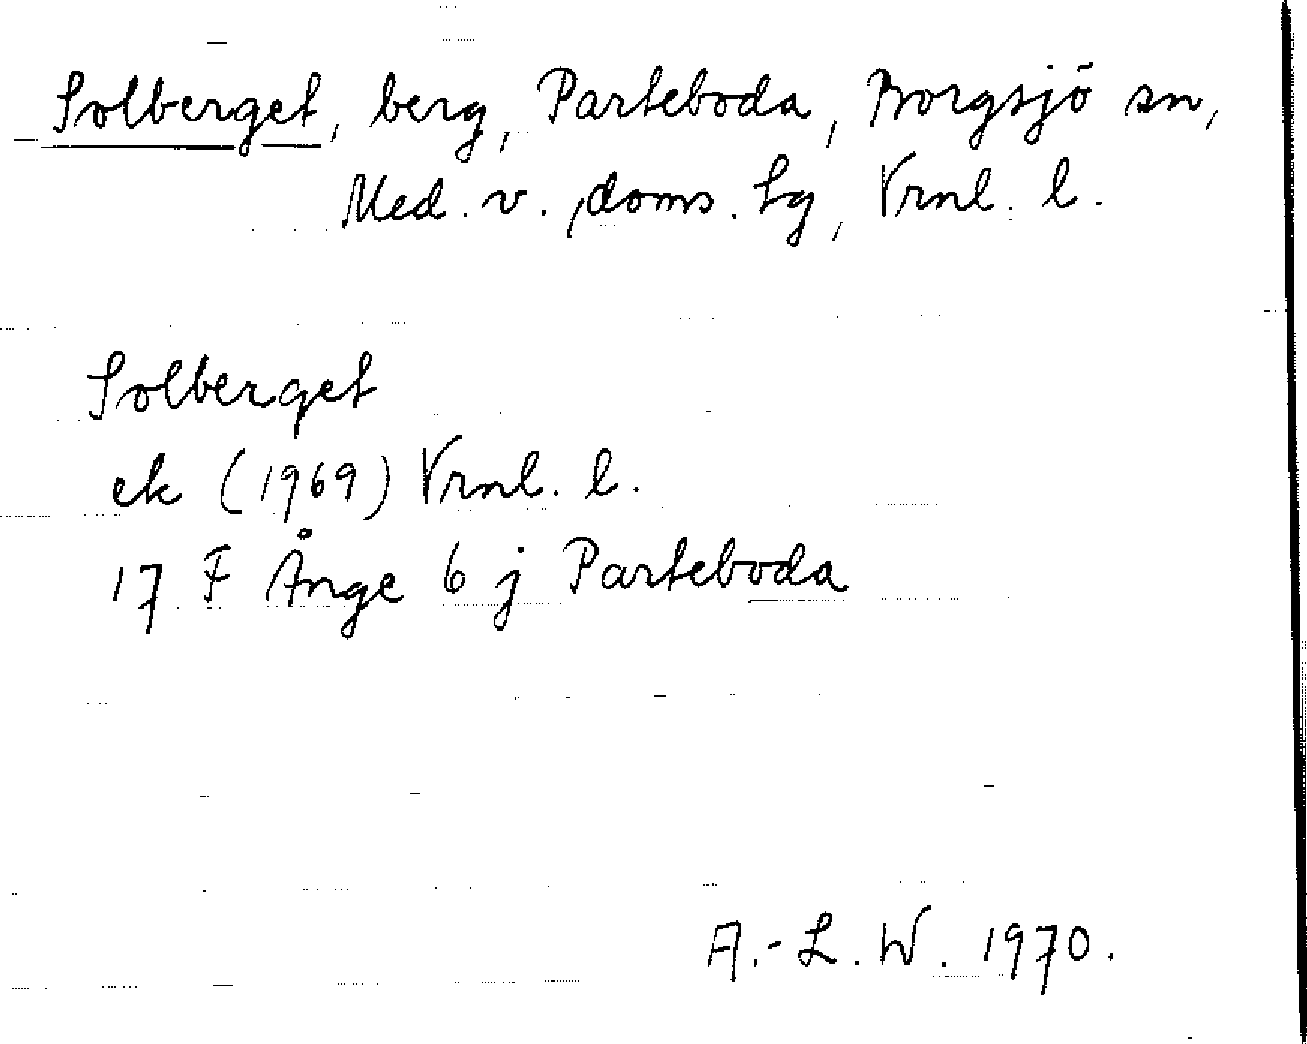 Solberget, berg, Parteboda, Borgsjö sn,
Med. v., doms. hg, Vrnl. l.
Solberget
ek (1969) Vrnl. l.
17 F Ånge 6 j Parteboda
A.-L. W. 1970.